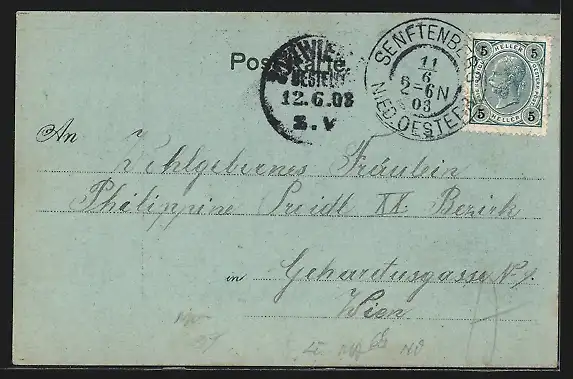 Postkarte
WIEN
BESTELLT
12.6.03
2.V
SENFTENBERG
11
6
2-6N
03
NIED.OESTERR.
5 HELLER 5
5 HELLER 5
An
Wohlgebornes Fräulein
Philippine Seidl IX. Bezirk
in Gehardusgasse N
Wien